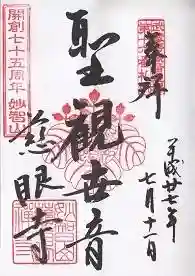 奉拝
平成廿七年
七月十一日
聖観世音
開創七十五周年 妙智山
慈眼寺